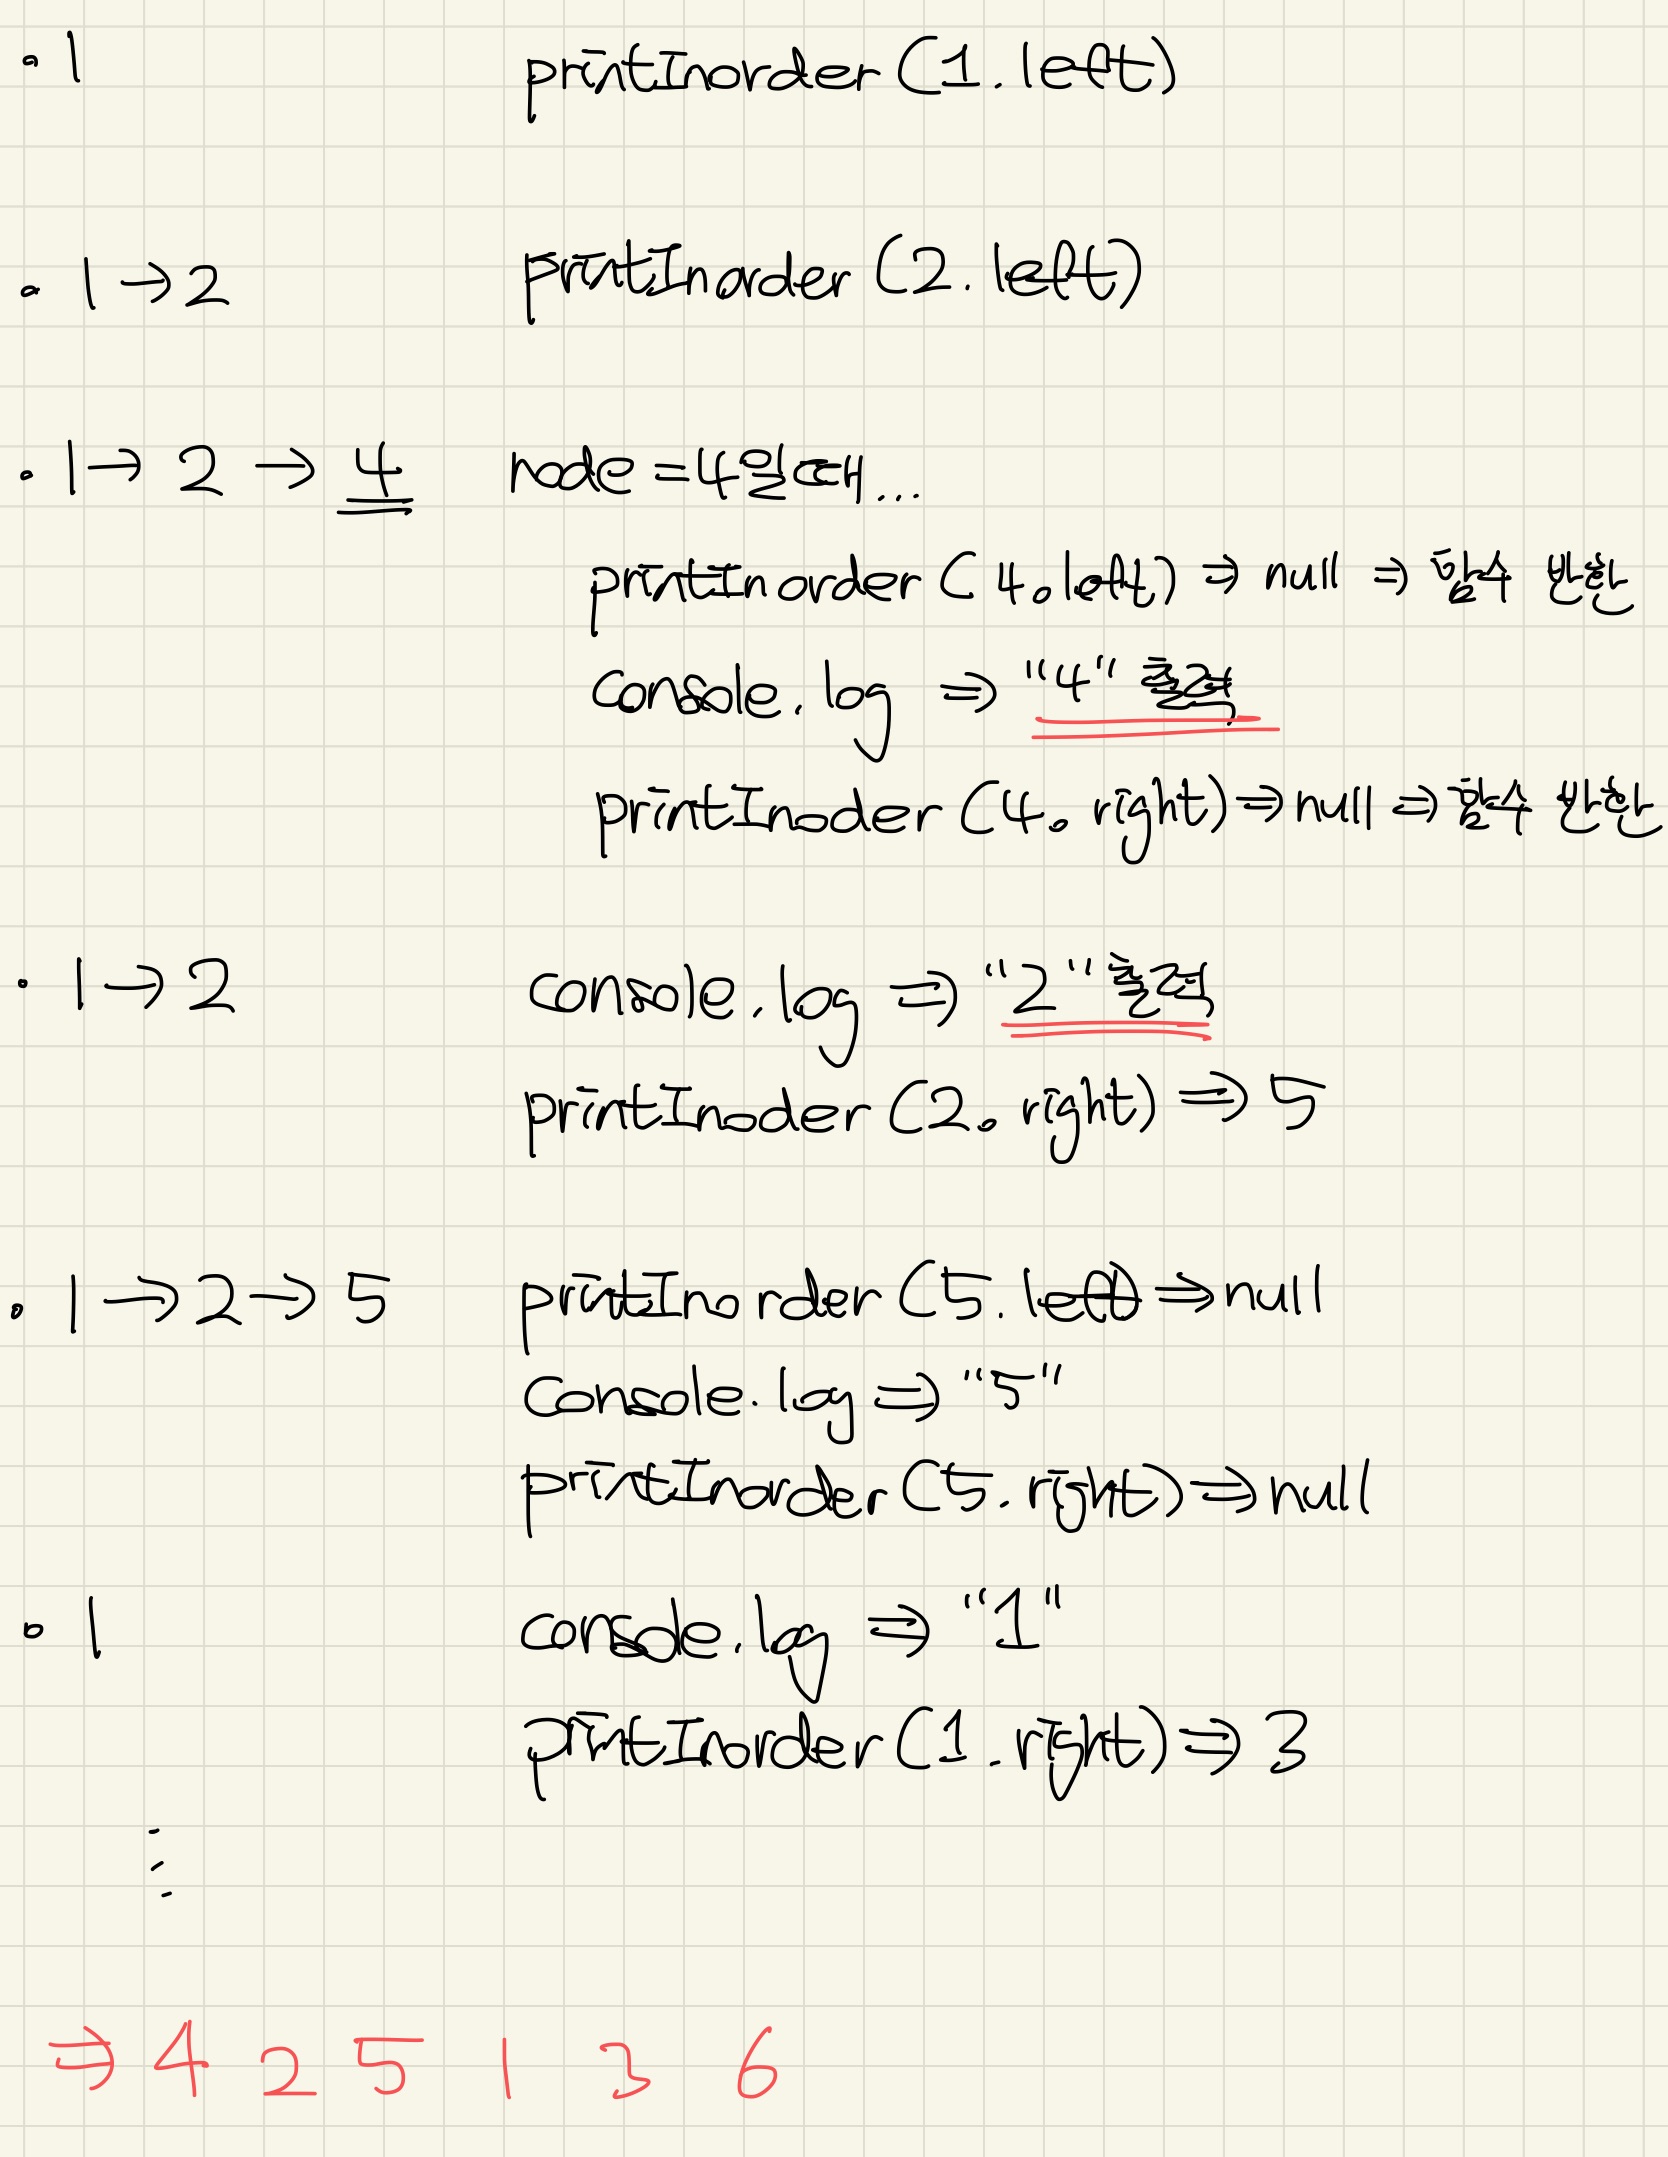 · 1 printInorder (1.left)
· 1 → 2 printInorder (2.left)
· 1 → 2 → 4 node = 4일때...
printInorder (4.left) ⇒ null ⇒ 함수 반환
console.log ⇒ "4" 출력
printInoder (4.right) ⇒ null ⇒ 함수 반환
· 1 → 2 console.log ⇒ "2" 출력
printInoder (2.right) ⇒ 5
· 1 → 2 → 5 printInorder (5.left) ⇒ null
console.log ⇒ "5"
printInorder (5.right) ⇒ null
· 1 console.log ⇒ "1"
printInorder (1.right) ⇒ 3
⋮
⇒ 4 2 5 1 3 6